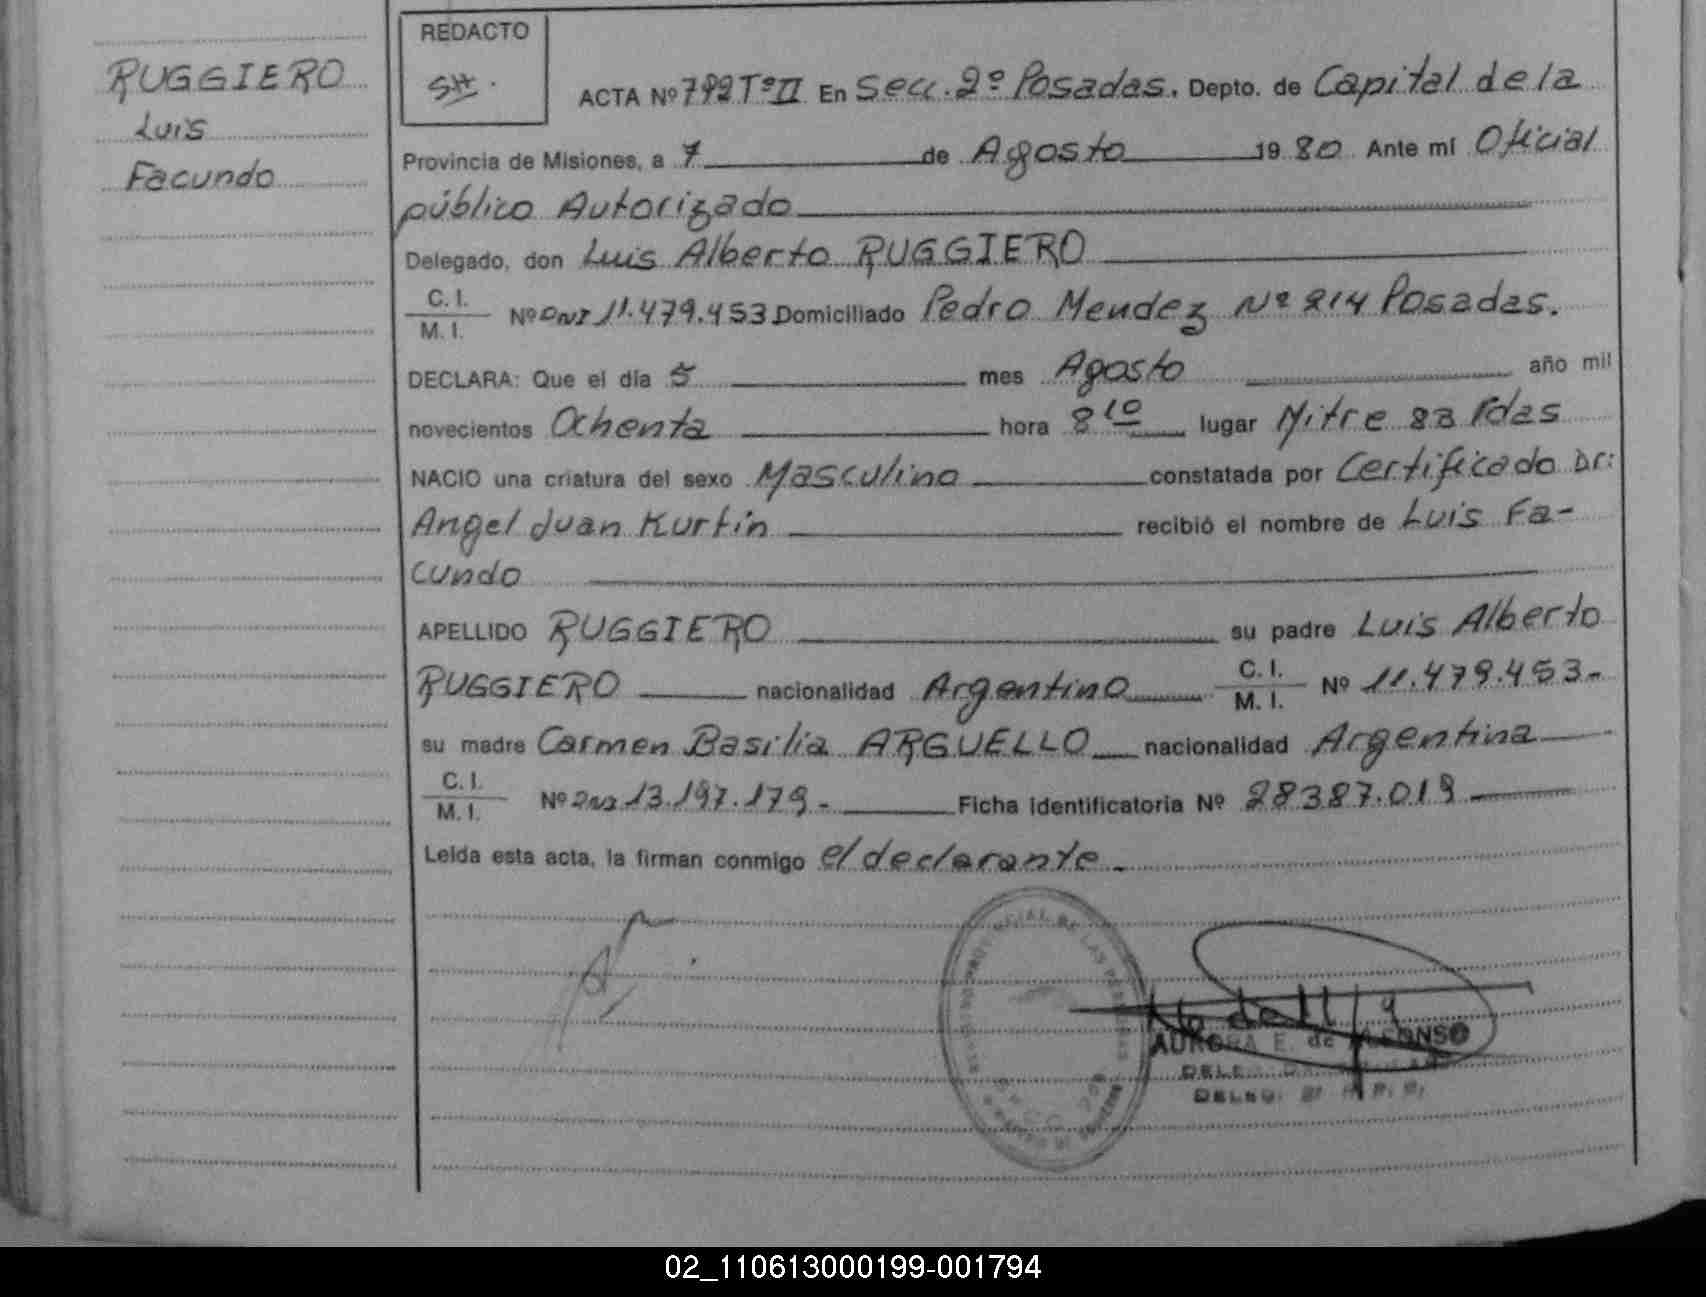 RUGGIERO
Luis
Facundo
REDACTO
ACTA Nº 792 Tº II En Secc. 2º Posadas. Depto. de Capital de la
Provincia de Misiones, a 7 de Agosto 1980 Ante mí Oficial
público Autorizado
Delegado, don Luis Alberto RUGGIERO
C. I.
M. I.
Nº DNI 11.479.453 Domiciliado Pedro Mendez Nº 214 Posadas.
DECLARA: Que el día 5 mes Agosto año mil
novecientos Ochenta hora 8 10 lugar Mitre 83 Pdas
NACIO una criatura del sexo Masculino constatada por Certificado Dr:
Angel Juan Kurtin recibió el nombre de Luis Fa-
cundo
APELLIDO RUGGIERO su padre Luis Alberto
RUGGIERO nacionalidad Argentino C. I. M. I. Nº 11.479.453-
su madre Carmen Basilia ARGUELLO nacionalidad Argentina
C. I.
M. I.
Nº DNI 13.197.179- Ficha Identificatoria Nº 28387.019
Leída esta acta, la firman conmigo el declarante.
AURORA E. de ALFONSO
02_110613000199-001794